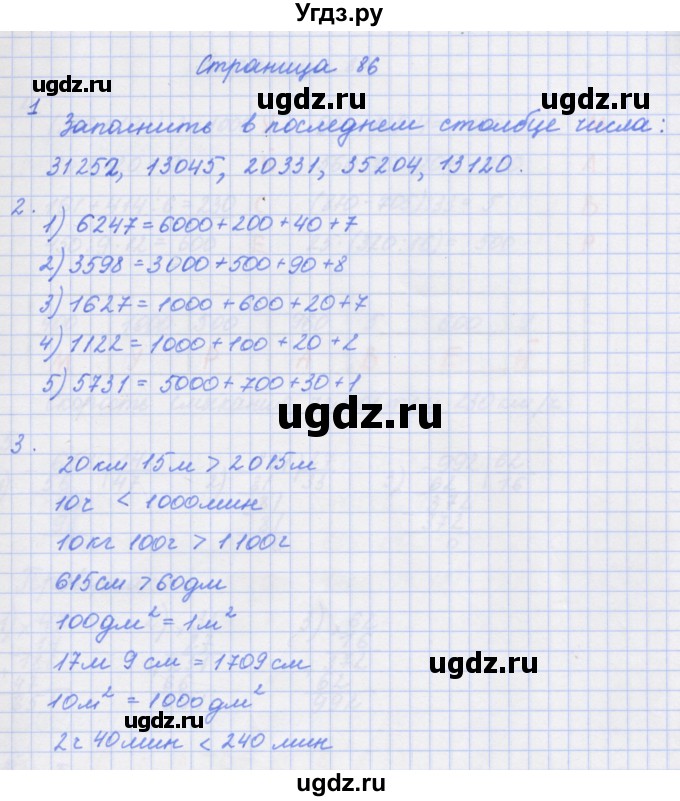 Угдз.ру
Страница 86
ugdz.ru
ugdz.ru
ugdz.ru
1
Заполнить в последнем столбце числа:
31252, 13045, 20331, 35204, 13120.
2.
1) 6247 = 6000 + 200 + 40 + 7
2) 3598 = 3000 + 500 + 90 + 8
3) 1627 = 1000 + 600 + 20 + 7
4) 1122 = 1000 + 100 + 20 + 2
5) 5731 = 5000 + 700 + 30 + 1
ugdz.ru
3.
20 км 15 м > 2015 м
10 ч < 1000 мин
10 кг 100 г > 1100 г
615 см > 60 дм
100 дм² = 1 м²
17 м 9 см = 1709 см
ugdz.ru
10 м² = 1000 дм²
ugdz.ru
2 ч 40 мин < 240 мин
ugdz.ru